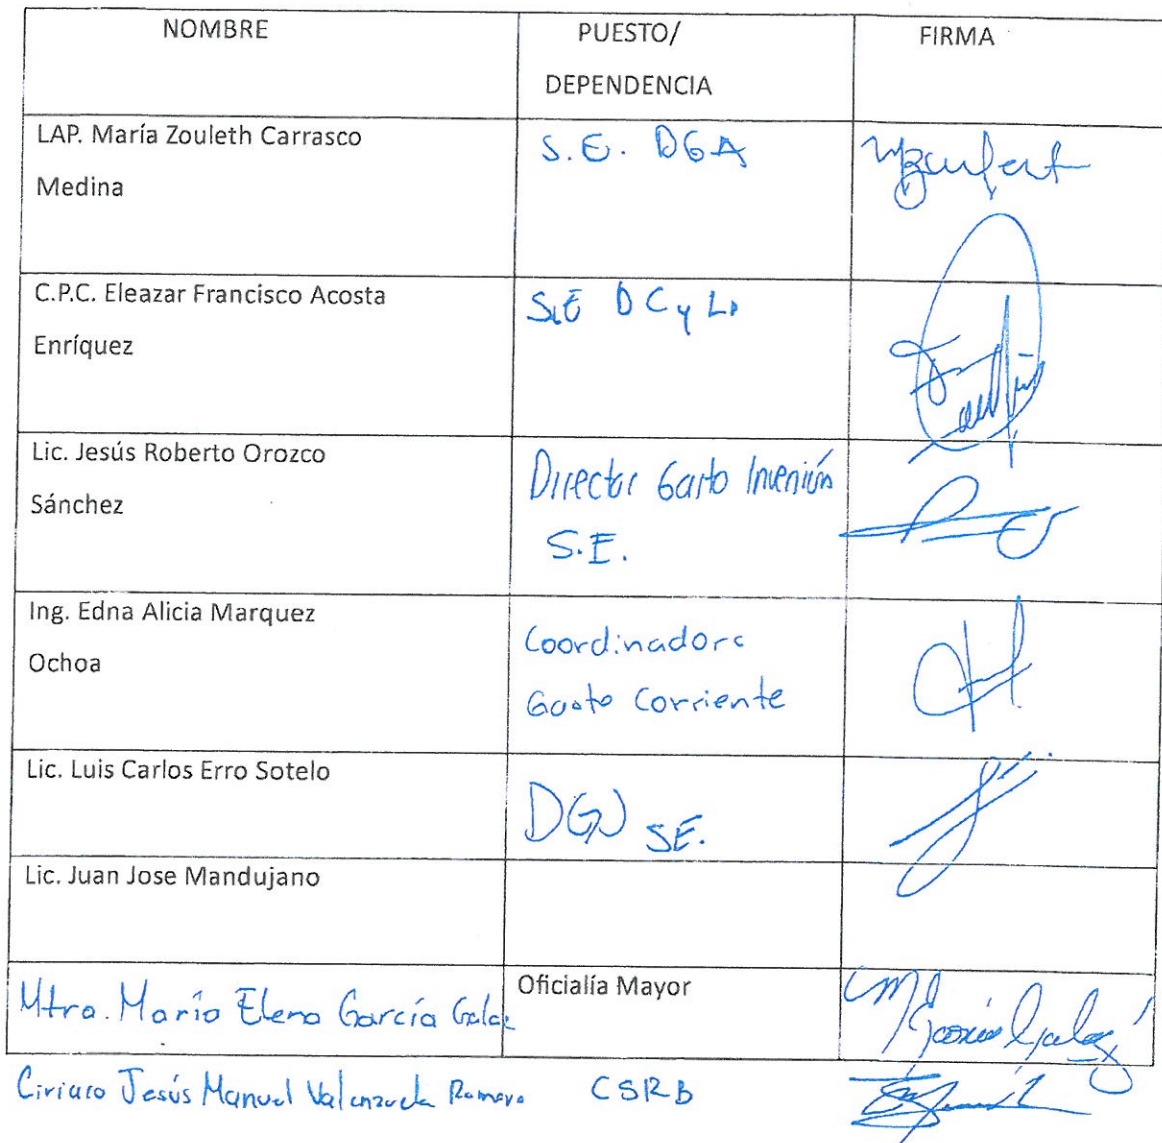 NOMBRE PUESTO/ FIRMA
DEPENDENCIA
LAP. María Zouleth Carrasco S.E. DGA
Medina
C.P.C. Eleazar Francisco Acosta S.E D C y L.
Enríquez
Lic. Jesús Roberto Orozco Director Gasto Inversión
Sánchez S.E.
Ing. Edna Alicia Marquez Coordinadora
Ochoa Gasto Corriente
Lic. Luis Carlos Erro Sotelo SE.
Lic. Juan Jose Mandujano
Mtra. María Elena García Galaz Oficialía Mayor
Jesús Manuel Valenzuela Romero CSRB